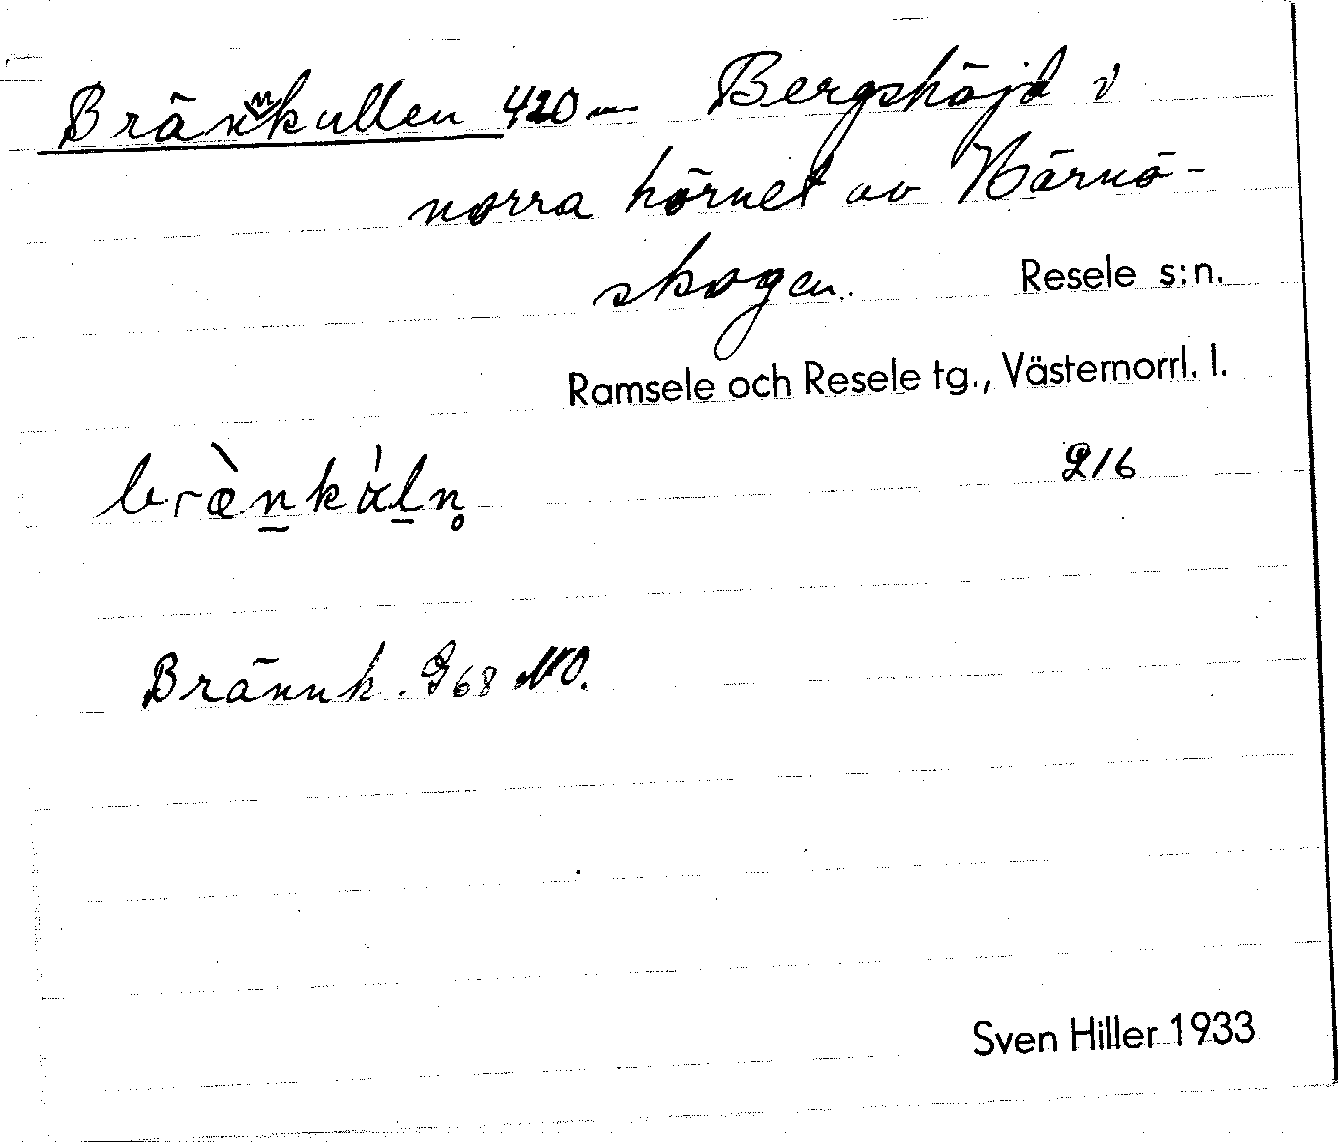 Brännkullen 420 — Bergshöjd i
norra hörnet av Härnö-
skogen. Resele s:n.
Ramsele och Resele tg., Västernorrl. l.
216
Brännk. 968 NO.
Sven Hiller 1933